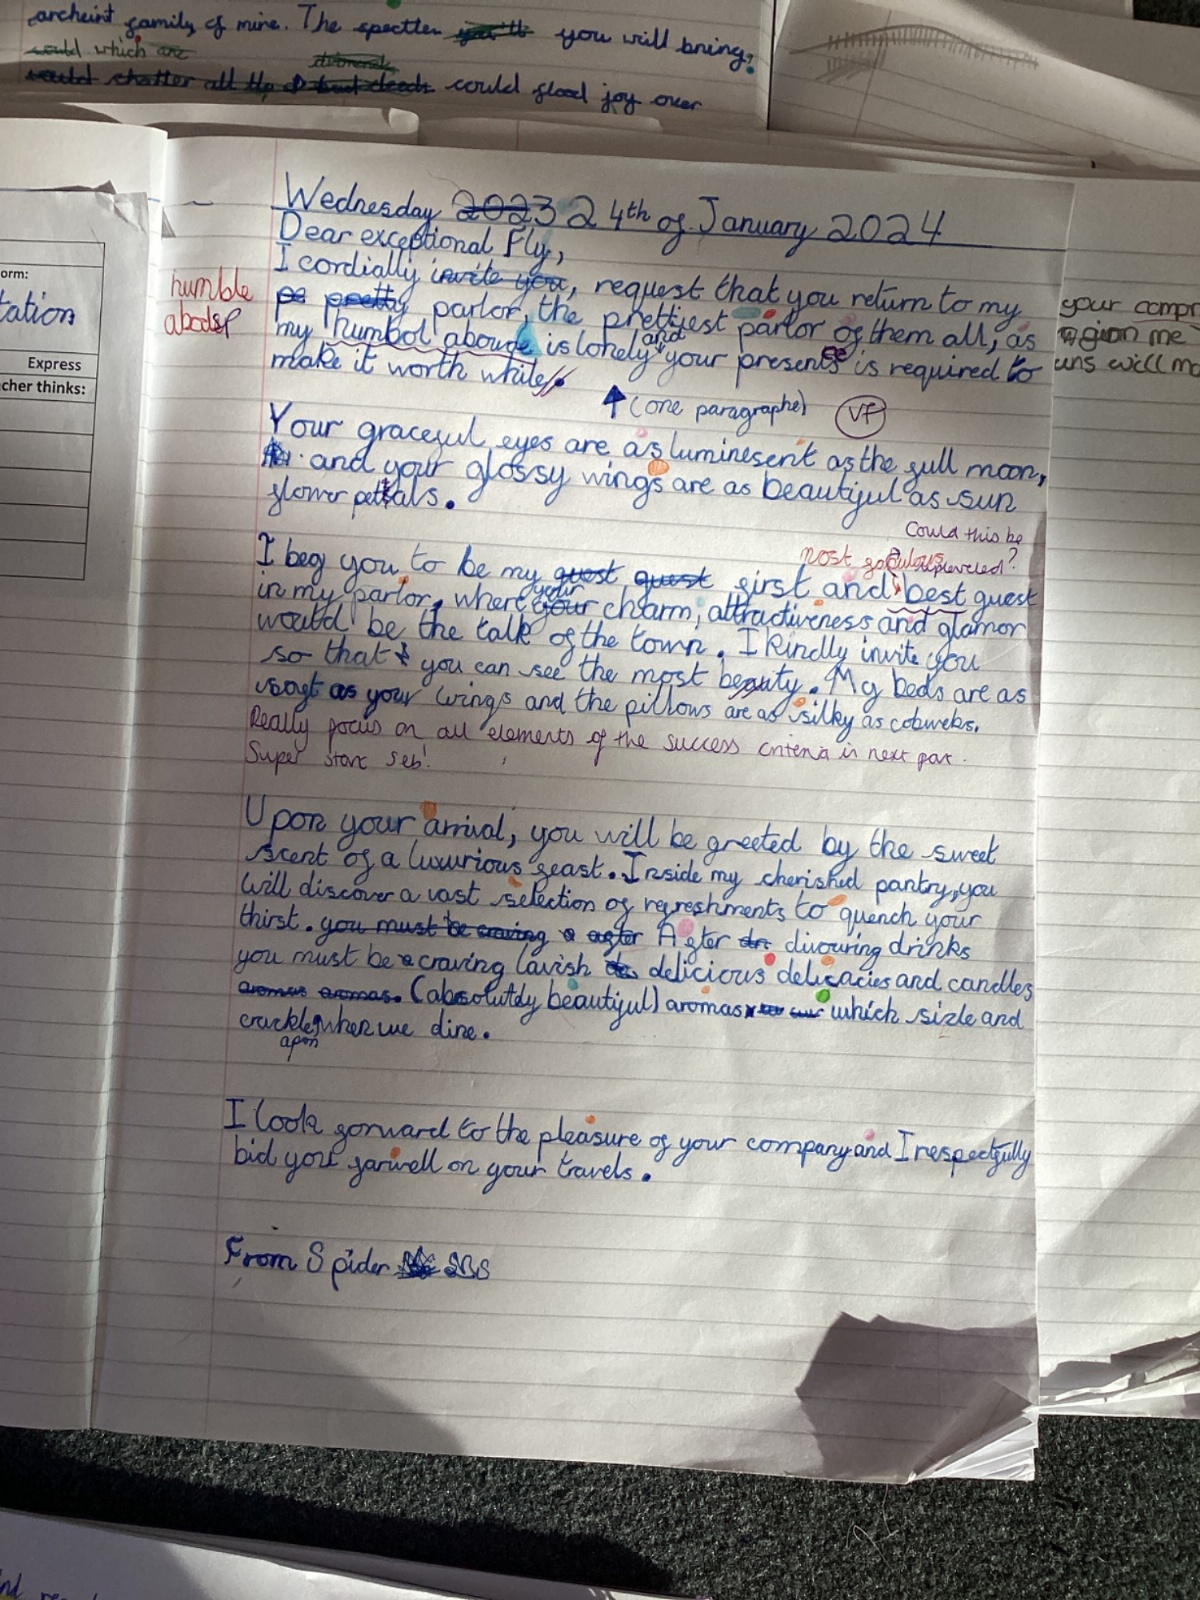 archeint family of mine. The spectten you will bring.
would which are diamends
would chatter all the bad deeds could flood joy over
orm:
tation
Express
cher thinks:
Wednesday 2023 24th of January 2024
Dear exceptional Fly,
I cordially invite you, request that you return to my
humble
pretty parlor, the prettiest parlor of them all, as
abode sp
my humbol aboude is lonely and your presense is required to
make it worth while.
(one paragraphe) VF
Your graceful eyes are as luminesent as the full moon,
and your glossy wings are as beautiful as sun
flower petals.
Could this be
most fabulous uplevelled?
I beg you to be my guest guest first and best guest
in my parlor, where your your charm, attractiveness and glamor
would be the talk of the town. I Kindly invite you
so that you can see the most beauty. My beds are as
soft as your wings and the pillows are as silky as cobwebs.
Really focus on all elements of the success criteria in next par.
Super start Seb!
Upon your arrival, you will be greeted by the sweet
scent of a luxurious feast. Inside my cherished pantry, you
will discover a vast selection of refreshments to quench your
thirst. you must be craving a after After divouring drinks
you must be craving lavish delicious delicacies and candles
aromas aromas. (absolutely beautiful) aromas which sizle and
crackle, when we dine.
apon
I look forward to the pleasure of your company and I respectfully
bid you farwell on your travels.
From Spider
your compn
given me
uns will ma